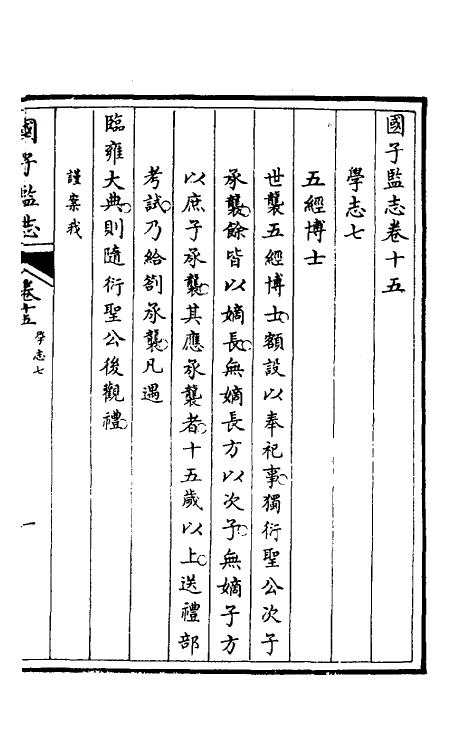 國子監志卷十五
學志七
五經博士
世襲五經博士額設以奉祀事獨衍聖公次子
承襲餘皆以嫡長無嫡長方以次子無嫡子方
以庶子承襲其應承襲者十五歲以上送禮部
考試乃給劄承襲凡遇
臨雍大典則隨衍聖公後觀禮
謹案我
國子監志 卷十五 學志七 一